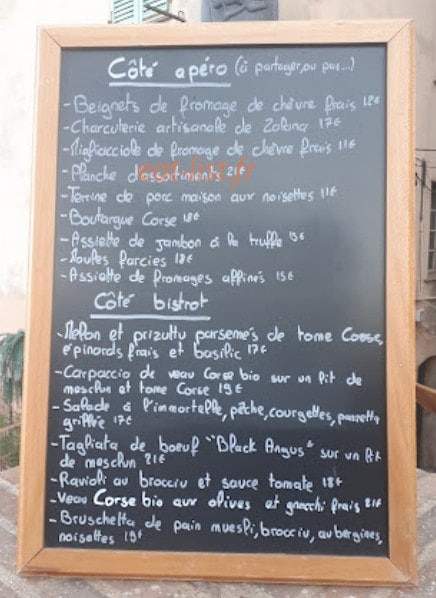 Côté apéro (à partager, ou pas...)
- Beignets de fromage de chèvre frais
- Charcuterie artisanale de Zalana 17€
- Migliacciole de fromage de chèvre frais 11€
- Planche d'assortiments 21€
- Terrine de porc maison aux noisettes 11€
- Boutargue Corse 18€
- Assiette de jambon à la truffe 15€
- Moules farcies 18€
- Assiette de fromages affinés 15€
Côté bistrot
- Melon et prizuttu parsemés de tome Corse,
épinards frais et basilic 17€
- Carpaccio de veau Corse bio sur un lit de
mesclun et tome Corse 19€
- Salade à l'immortelle, pêche, courgettes, panzetta
grillée 17€
- Tagliata de boeuf "Black Angus" sur un lit
de mesclun 21€
- Ravioli au brocciu et sauce tomate 18€
- Veau Corse bio aux olives et gnocchi frais 21€
- Bruschetta de pain muesli, brocciu, aubergines,
noisettes 19€